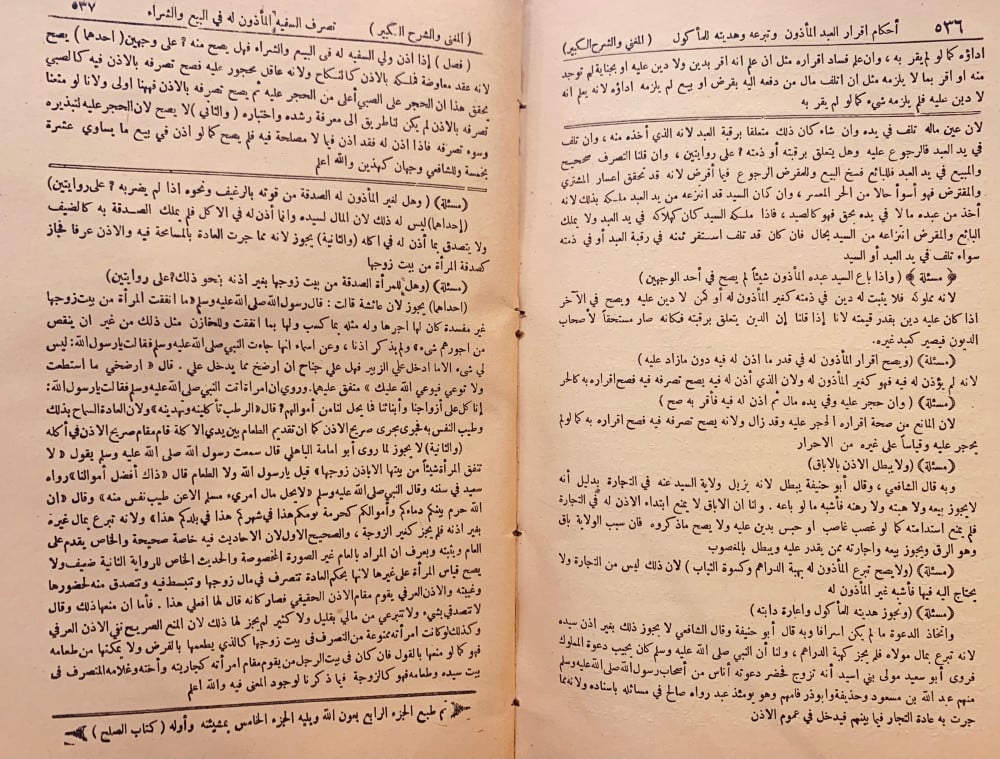 ٥٣٦ أحكام اقرار العبد المأذون وتبرعه وهديته للمأكول ( المغني والشرح الكبير)
اداؤه كما لو لم يقر به ، وان علم فساد اقراره مثل ان علم انه اقر بدين ولا دين عليه او بجناية لم توجد
منه او اقر بما لا يلزمه مثل ان اتلف مال من دفعه اليه بقرض او بيع لم يلزمه اداؤه لانه يعلم انه
لا دين عليه فلم يلزمه شيء كما لو لم يقر به
لان عين ماله تلف في يده وان شاء كان ذلك متعلقا برقبة العبد لانه الذي أخذه منه ، وان تلف
في يد العبد فالرجوع عليه وهل يتعلق برقبته أو ذمته ? على روايتين ، وان قلنا التصرف صحيح
والمبيع في يد العبد فللبائع فسخ البيع وللمقرض الرجوع فيما أقرض لانه قد تحقق اعسار المشتري
والمقترض فهو أسوأ حالا من الحر المعسر ، وان كان السيد قد انتزعه من يد العبد ملكه بذلك لانه
أخذ من عبده مالا في يده بحق فهو كالصيد ، فاذا ملكه السيد كان كهلاكه في يد العبد ولا يملك
البائع والمقرض انتزاعه من السيد بحال فان كان قد تلف استقر ثمنه في رقبة العبد أو في ذمته
سواء تلف في يد العبد أو السيد
﴿ مسئلة ﴾ ( واذا باع السيد عبده المأذون شيئاً لم يصح في أحد الوجهين )
لانه مملوكه فلا يثبت له دين في ذمته كغير المأذون له أو كمن لا دين عليه ويصح في الآخر
اذا كان عليه دين بقدر قيمته لانا إذا قلنا إن الدين يتعلق برقبته فكأنه صار مستحقاً لأصحاب
الديون فيصير كعبد غيره.
(مسئلة) (ويصح اقرار المأذون له في قدر ما اذن له فيه دون مازاد عليه)
لانه لم يؤذن له فيه فهو كغير المأذون له ولان الذي أذن له فيه يصح تصرفه فيه فصح اقراره به كالحر
(مسئلة) ( وان حجر عليه وفي يده مال ثم اذن له فيه فأقر به صح )
لان المانع من صحة اقراره الحجر عليه وقد زال ولانه يصح تصرفه فيه فصح اقراره به كما لو لم
يحجر عليه وقياساً على غيره من الاحرار
(مسئلة) (ولا يبطل الاذن بالاباق)
وبه قال الشافعي ، وقال أبو حنيفة يبطل لانه يزيل ولاية السيد عنه في التجارة بدليل أنه
لايجوز بيعه ولا هبته ولا رهنه فأشبه ما لو باعه . ولنا ان الاباق لا يمنع ابتداء الاذن له في التجارة
فلم يمنع استدامته كما لو غصب غاصب او حبس بدين عليه ولا يصح ماذكروه فان سبب الولاية باق
وهو الرق ويجوز بيعه واجارته ممن يقدر عليه ويبطل بالمغصوب
(مسئلة) (ولا يصح تبرع المأذون له بهبة الدراهم وكسوة الثياب ) لان ذلك ليس من التجارة ولا
يحتاج اليه فيها فأشبه غير المأذون له
(مسئلة) (وتجوز هديته للمأكول واعارة دابته )
واتخاذ الدعوة ما لم يكن اسرافا وبه قال أبو حنيفة وقال الشافعي لا يجوز ذلك بغير اذن سيده
لانه تبرع بمال مولاه فلم يجز كهبة الدراهم ، ولنا أن النبي صلى الله عليه وسلم كان يجيب دعوة المملوك
فروى أبو سعيد مولى بني اسيد أنه تزوج فحضر دعوته أناس من أصحاب رسول الله صلى الله عليه وسلم
منهم عبد الله بن مسعود وحذيفة وابوذر فأمهم وهو يومئذ عبد رواه صالح في مسائله باسناده ولانه مما
جرت به عادة التجار فيما بينهم فيدخل في عموم الاذن
( المغني والشرح الكبير ) تصرف السفيه المأذون له في البيع والشراء ٥٣٧
( فصل ) إذا اذن ولي السفيه له في البيع والشراء فهل يصح منه ? على وجهين( احدها ) يصح
لانه عقد معاوضة فملكه بالاذن كالنكاح ولانه عاقل محجور عليه فصح تصرفه بالاذن فيه كالصبي
يحقق هذا ان الحجر على الصبي أعلى من الحجر عليه ثم يصح تصرفه بالاذن فههنا اولى ولانا لو منعنا
تصرفه بالاذن لم يكن لنا طريق الى معرفة رشده واختباره ( والثاني )لا يصح لان الحجر عليه لتبذيره
وسوء تصرفه فاذا اذن له فقد اذن فيها لا مصلحة فيه فلم يصح كما لو اذن في بيع ما يساوي عشرة
بخمسة وللشافعي وجهان كهذين والله اعلم
(مسئلة) ( وهل لغير المأذون له الصدقة من قوته بالرغيف ونحوه اذا لم يضر به ? على روايتين)
(إحداها)ليس له ذلك لان المال لسيده وانما أذن له في الا كل فلم يملك الصدقة به كالضيف
ولا يتصدق بما أذن له في اكله (والثانية) يجوز لانه مما جرت العادة بالمسامحة فيه والاذن عرفا فجاز
كصدقة المرأة من بيت زوجها
(مسئلة) (وهل للمرأة الصدقة من بيت زوجها بغير اذنه بنحو ذلك?على روايتين)
(احداها) يجوز لان عائشة قالت : قال رسول الله صلى الله عليه وسلم «ما انفقت المرأة من بيت زوجها
غير مفسدة كان لها اجرها وله مثله بما كسب ولها بما انفقت وللخازن مثل ذلك من غير ان ينقص
من اجورهم شيء » ولم يذكر اذنا ، وعن اسماء انها جاءت النبي صلى الله عليه وسلم فقالت يارسول الله: ليس
لي شيء الا ما ادخل علي الزبير فهل علي جناح ان ارضخ مما يدخل علي . قال « ارضخي ما استطعت
ولا توعي فيوعي الله عليك » متفق عليهما. وروي ان امرأة اتت النبي صلى الله عليه وسلم فقالت يارسول الله:
إنا كل على أزواجنا وأبنائنا فما يحل لنا من أموالهم? قال« الرطب تأكلينه وتهدينه» ولان العادة السماح بذلك
وطيب النفس به فجرى مجرى صريح الاذن كما ان تقديم الطعام بين يدي الاكلة قام مقام صريح الاذن في أكله
(والثانية) لا يجوز لما روى أبو امامة الباهلي قال سمعت رسول الله صلى الله عليه وسلم يقول « لا
تنفق المرأة شيئاً من بيتها الا باذن زوجها» قيل يارسول الله ولا الطعام قال «ذاك أفضل أموالنا» رواه
سعيد في سننه وقال النبي صلى الله عليه وسلم «لا يحل مال امريء مسلم الا عن طيب نفس منه» وقال «ان
الله حرم بينكم دماءكم وأموالكم كحرمة يومكم هذا في شهركم هذا في بلدكم هذا» ولانه تبرع بمال غيره
بغير اذنه فلم يجز كغير الزوجة ، والصحيح الاول لان الاحاديث فيه خاصة صحيحة والخاص يقدم على
العام ويبينه ويعرف ان المراد بالعام غير الصورة المخصوصة والحديث الخاص للرواية الثانية ضعيف ولا
يصح قياس المرأة على غيرها لانها بحكم العادة تتصرف في مال زوجها وتتبسط فيه وتتصدق منه لحضورها
وغيبته والاذن العرفي يقوم مقام الاذن الحقيقي فصار كانه قال لها افعلي هذا . فأما ان منعها ذلك وقال
لا تصدقي بشيء ولا تتبرعي من مالي بقليل ولا كثير لم يجز لها ذلك لان المنع الصريح نفي الاذن العرفي
وكذلك لو كانت امرأته ممنوعة من التصرف في بيت زوجها كالذي يطعمها بالفرض ولا يمكنها من طعامه
فهو كما لو منعها بالقول فان كان في بيت الرجل من يقوم مقام امرأته كجاريته وأخته وغلامه المتصرف في
بيت سيده وطعامه فهو كالزوجة فيما ذكرنا لوجود المعنى فيه والله اعلم
تم طبع الجزء الرابع بعون الله ويليه الجزء الخامس بمشيئته وأوله ( كتاب الصلح )